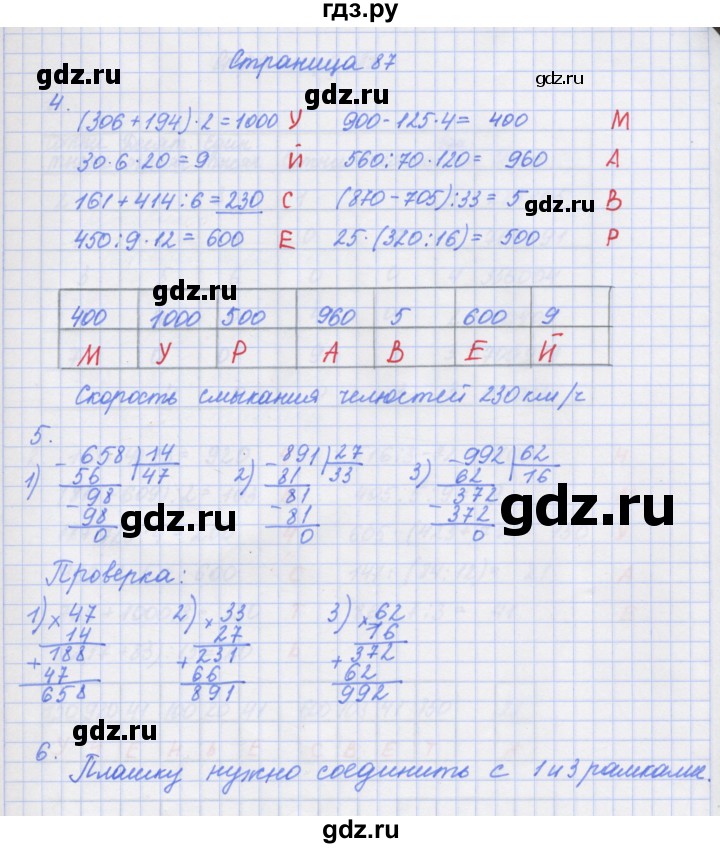 гдз.ру
Страница 87
gdz.ru gdz.ru gdz.ru
4.
(306+194)·2=1000 У 900-125·4= 400 М
30·6·20=9 Й 560:70·120= 960 А
161+414:6=230 С (870-705):33= 5 В
gdz.ru gdz.ru
450:9·12= 600 Е 25·(320:16)= 500 Р
gdz.ru
400 1000 500 960 5 600 9
М У Р А В Е Й
Скорость смыкания челюстей 230км/ч
5.
1) -658 14 2) -891 27 3) -992 62
56 47 81 33 62 16
-98 -81 -372
98 81 372
0 0 0
gdz.ru gdz.ru
Проверка:
1) ×47 2) ×33 3) ×62
14 27 16
+188 +231 +372
47 66 62
658 891 992
gdz.ru gdz.ru
6.
Плашку нужно соединить с 1и3рамками.
gdz.ru